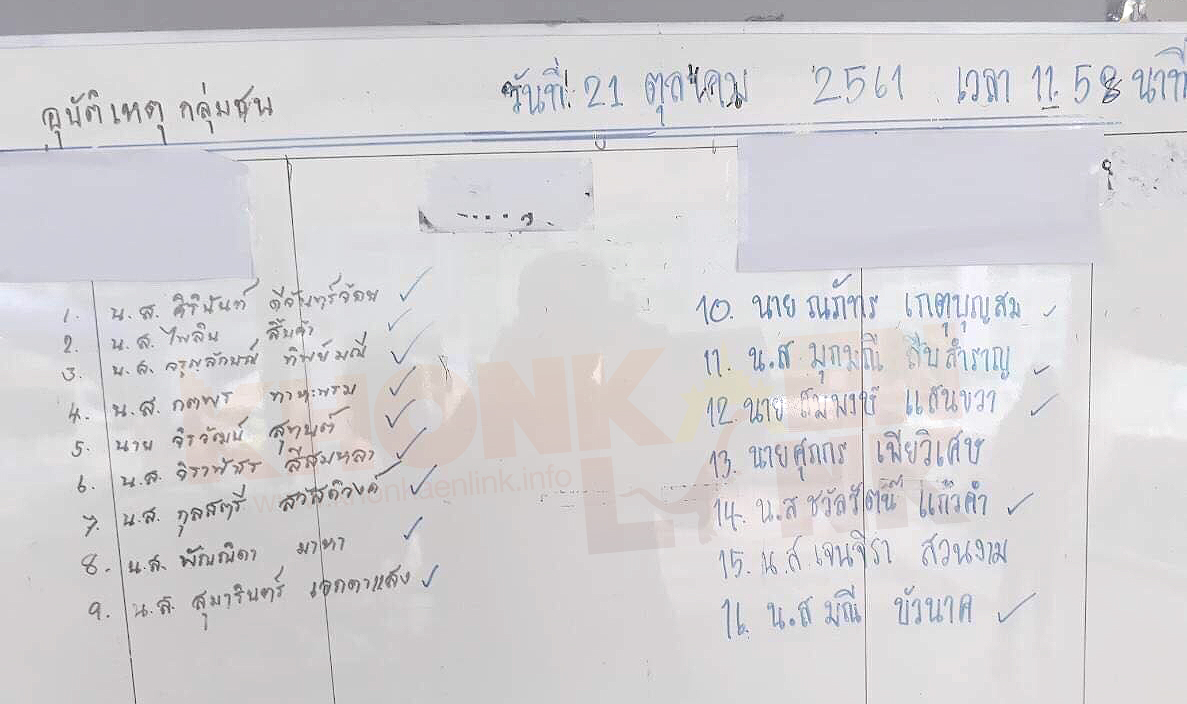 อุบัติเหตุ กลุ่มชน วันที่ 21 ตุลาคม 2561 เวลา 11.58 นาที
1. น.ส. ศิรินันท์ ดีจันทร์จัดพ
2. น.ส. ไพลิน สินค้า
3. น.ส. จรุญลักษณ์ ทิพย์มณี
4. น.ส. กตพร ทานะพรม
5. นาย จิรวัฒน์ สุทนต์
6. น.ส. จิราพัชร สีสมหลา
7. น.ส. กุลสตรี สวัสดิวงค์
8. น.ส. พัณณิดา มาหา
9. น.ส. สุมารินทร์ เอกตาแสง
10. นาย ณภัทร เกตุบุญสม
11. น.ส มุกมณี สืบสำราญ
12. นาย สมพงษ์ แสนขวา
13. นายศุภกร เพียวิเศษ
14. น.ส ชวัลรัตน์ แก้วคำ
15. น.ส เจนจิรา สวนงาม
16. น.ส มณี บัวนาค
KHONKAEN LINK
www.khonkaenlink.info